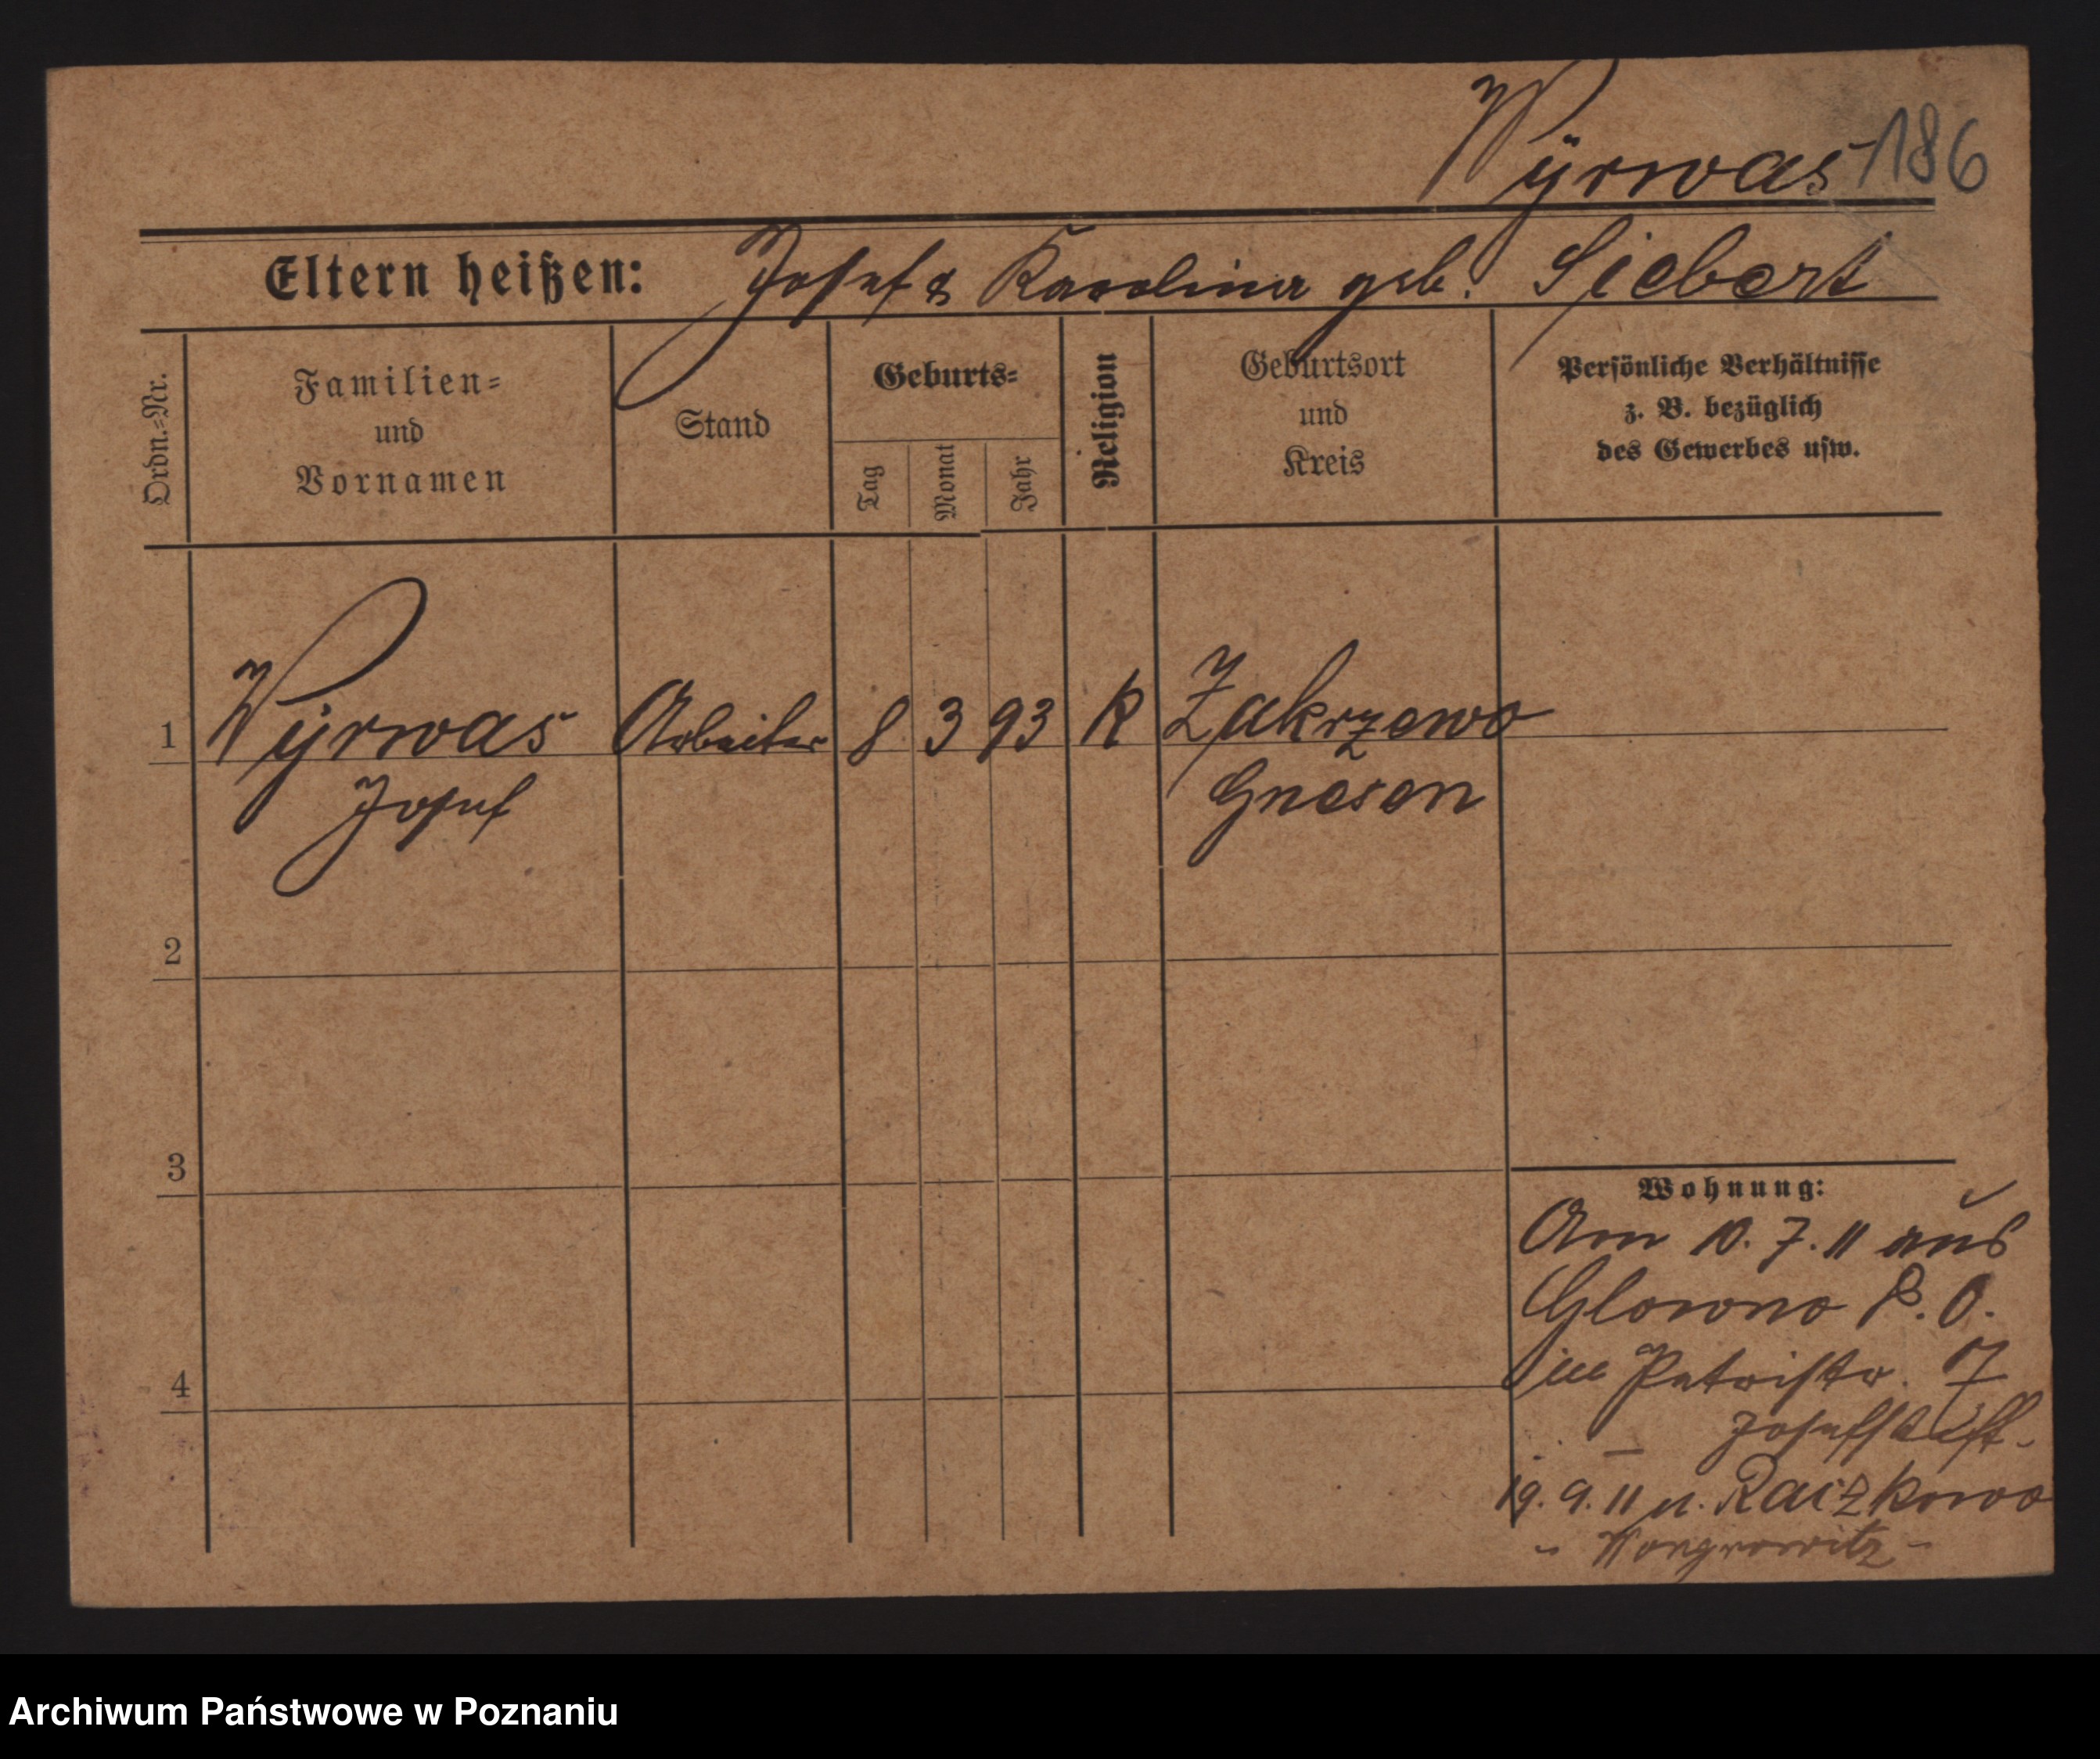 Wÿrwas 186
Eltern heißen: Josef & Karolina geb. Siebert
Ordn.-Nr.
Familien=
und
Vornamen
Stand
Geburts=
Tag
Monat
Jahr
Religion
Geburtsort
und
Kreis
Persönliche Verhältnisse
z. B. bezüglich
des Gewerbes usw.
1 Wÿrwas Arbeiter 8 3 93 K Zakrzewo
Josef Gnesen
2
3
4
Wohnung:
Am 10. 7. 11 aus
Glowno P. O.
in Petristr. 7
19. 9. 11 n. Raczkowo
- Wongrowitz -
Archiwum Państwowe w Poznaniu